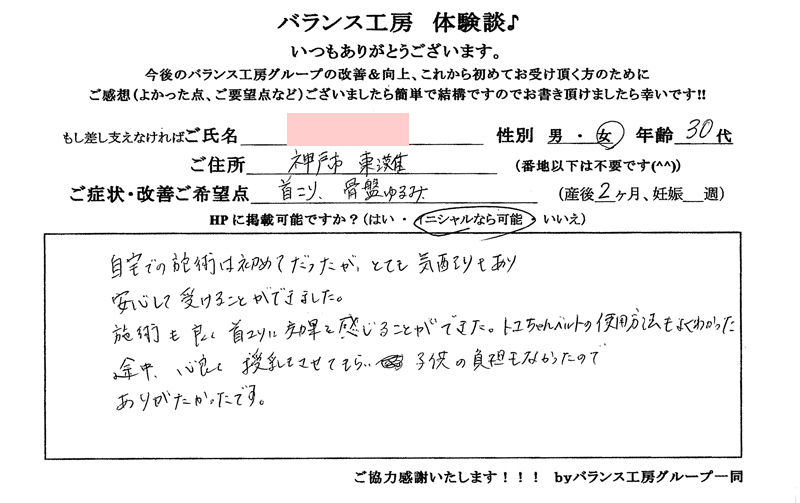 バランス工房 体験談♪
いつもありがとうございます。
今後のバランス工房グループの改善&向上、これから初めてお受け頂く方のために
ご感想(よかった点、ご要望点など)ございましたら簡単で結構ですのでお書き頂けましたら幸いです!!
もし差し支えなければご氏名 性別 男・女 年齢 30代
ご住所 神戸市 東灘 (番地以下は不要です(^^))
ご症状・改善ご希望点 首こり、骨盤ゆるみ (産後2ヶ月、妊娠__週)
HPに掲載可能ですか?(はい・イニシャルなら可能・いいえ)
自宅での施術は初めてだったが、とても気配りもあり
安心して受けることができました。
施術も良く首こりに効果を感じることができた。トコちゃんベルトの使用方法もよくわかった
途中、心良く授乳もさせてもらい 子供の負担もなかったので
ありがたかったです。
ご協力感謝いたします!!! byバランス工房グループ一同